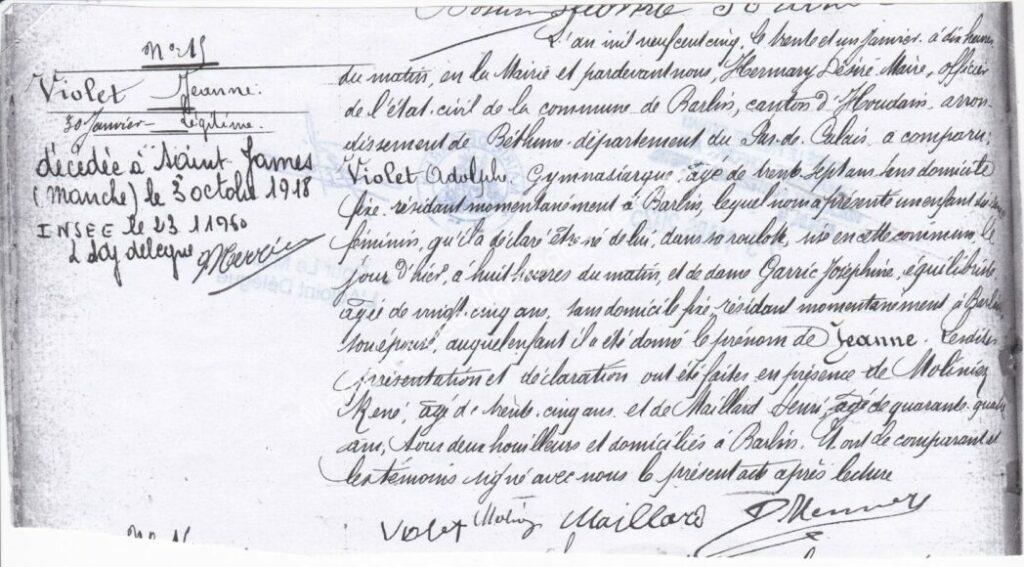 N° 15
Violet Jeanne.
30 Janvier - Légitime.
décédée à Saint James
(Manche) le 3 octobre 1918
INSEE le 23 1 1960
L'an mil neuf cent cinq, le trente et un Janvier à dix heures
du matin, en la Mairie et pardevant nous, Hermary Désiré Maire, officier
de l'état-civil de la commune de Barlin, canton d'Houdain, arron-
dissement de Béthune département du Pas-de-Calais, a comparu:
Violet Adolphe, Gymnasiarque, âgé de trente sept ans, sans domicile
fixe, résidant momentanément à Barlin, lequel nous a présenté un enfant du sexe
féminin, qu'il a déclaré être né de lui, dans sa roulotte, sise en cette commune, le
jour d'hier, à huit heures du matin, et de dame Garric Joséphine, équilibriste,
âgée de vingt-cinq ans, sans domicile fixe, résidant momentanément à Barlin
son épouse, auquel enfant il a été donné le prénom de Jeanne. Lesdites
présentation et déclaration ont été faites en présence de Molinier
René, âgé de trente-cinq ans et de Maillard Henri, âgé de quarante-quatre
ans, tous deux houilleurs et domiciliés à Barlin. Et ont le comparant et
les témoins signé avec nous le présent acte après lecture
Violet Maillard
N° 16